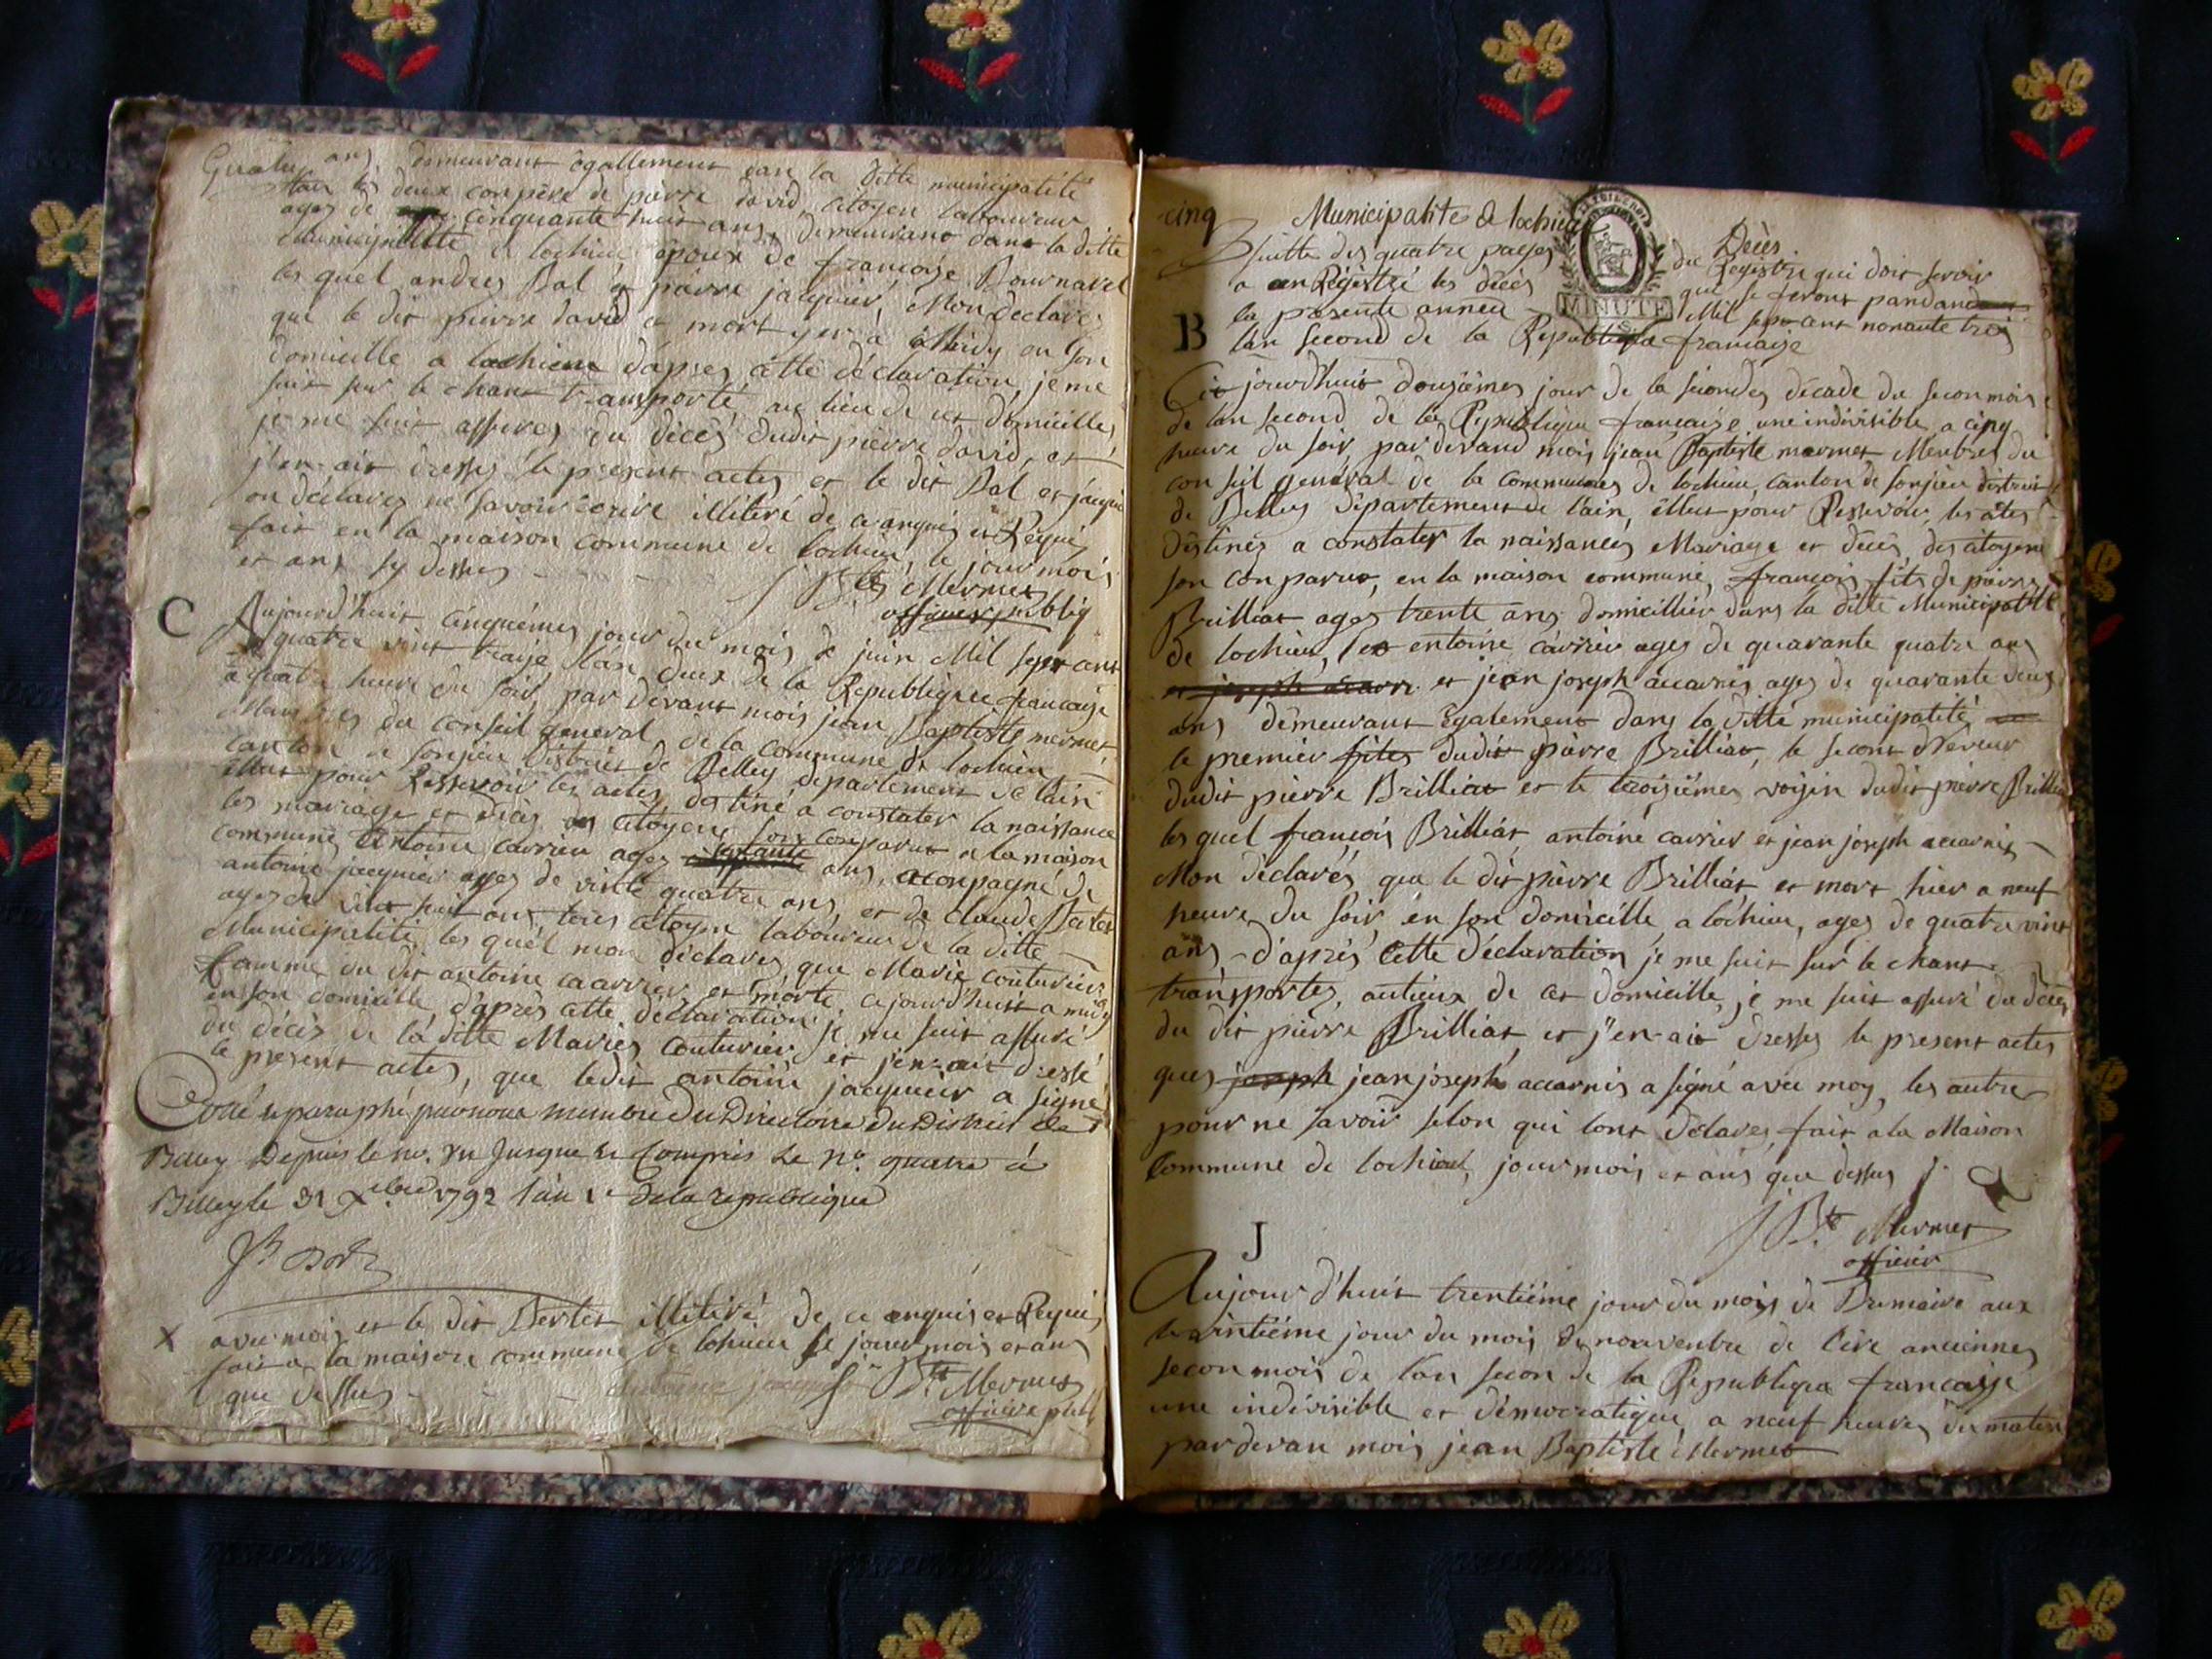 quatre ans, demeurant également dans la ditte municipalité
tous les deux conpère de pierre david, citoyen laboureur
agez de cinquante huit ans, demeurant dans la ditte
Municipalité de lochieu époux de francoise Bournavel
les quel andres Bal et pierre jacquier, Mon declares
que le dit pierre david et mort yer a Midy en son
domicille a lochieux d'apres cette déclaration, je me
suit sur le chant transporté, au lieu de cet domicille,
je me suit assures du décès dudit pierre david, et
j'en ait dresses le present actes et le dit Bal et jacquie
on déclares ne savoir écrire illitéré de ce anquis et Requi
fait en la maison commune de lochieu, le jour mois
et ans sy dessus
J Bte Mermet
officier publiq
C
Aujourd'huit cinquièmes jour du mois de juin Mil sept cent
quatre vint traize l'an deux de la Republiquee francaise
a quatre heure du soir, par devant mois jean Baptiste mermet,
Membres du conseil general de la commune de lochieu
canton de sonjieu district de Belley departement de l'ain
Elut pour Ressevoir les actes destiné a constater la naissance
les mariage et décès des citoyens son conparut a la maison
commune antoine carrier agez ans, aconpagné de
antoine jacquier agez de vint quatre ans et de claude Bertet
agez de vint huit ans tous citoyen laboureur de la ditte
Municipalité, les quel mon déclares, que Marie couturier
famme du dit antoine carrier et morte, ce jourd'huit a midy
en son domicille, d'après cette déclaration je me suit assuré
du décès de la ditte Maries couturier et j'en ait dressé
le present actes, que ledit antoine jacquier a signé
Cotté et paraphé par nous membre du Directoire du District de
Belley Depuis le no. un Jusque et Compris Le no. quatre à
Belley le 31 Xbre 1792 l'an 1er de la republique
X avec mois et le dit Bertet illitéré de ce anquis et Requi,
fait a la maison commune de lochieu le jour mois et ans
que dessus
antoine jacquier J Bte Mermet
officier publ
cinq Municipalité de lochieu
Decès
Suitte des quatre pages du Registre qui doit servir
a enRégistré les décès qui se feront pandant
la presente année Mil sept cent nonante trois
MINUTE
B
l'an second de la Republique francaise
Cejourd'huit douzièmes jour de la secondes décade du secon mois
de l'an second de la Republique francaise une indivisible, a cinq
heure du soir, par devant mois jean Baptiste mermet Menbres du
conseil general de la communes de lochieu, canton de sonjieu district
de Belley département de l'ain, éllut pour Ressevoir, les actes
Destinés a constater la naissances Mariage et décès, des citoyens
son conparut, en la maison commune, francois fits de pierre
Brilliat ages trente ans domicillier dans la ditte Municipalité
de lochieu, et antoine carrier agez de quarante quatre ans
et joseph acarri et jean joseph accarnis agez de quarante deux
ans demeurant également dans la ditte municipalité
le premier fites dudit pierre Brilliat, le secont Neveux
dudit pierre Brilliat et le troisièmes voisin dudit pierre Brilliat
les quel francois Brilliat, antoine carrier et jean joseph accarnis
Mon déclarés que le dit pierre Brilliat et mort hier a neuf
heures du soir, en son domicille a lochieu, ages de quatre vint
ans d'après cette déclaration je me suit sur le chant
transportes, aulieux de cet domicille, je me suit assuré du décès
du dit pierre Brilliat et j'en ait dresses le present actes
ques joseph jean joseph accarnis a signé avec moy, les autre
pour ne savoir selon qui l'ont déclares, fait a la Maison
Commune de lochieu, jour mois et ans que dessus
J Bte Mermet
officier
J
Aujourd'huit trentième jour du mois de Brumaire aux
vaintième jour du mois de nouvenbre de l'ére anciennes
secon mois de l'an secon de la Republique francaise
une indévisible et démocratique, a neuf heures du matin
pardevan mois jean Baptiste Mermet